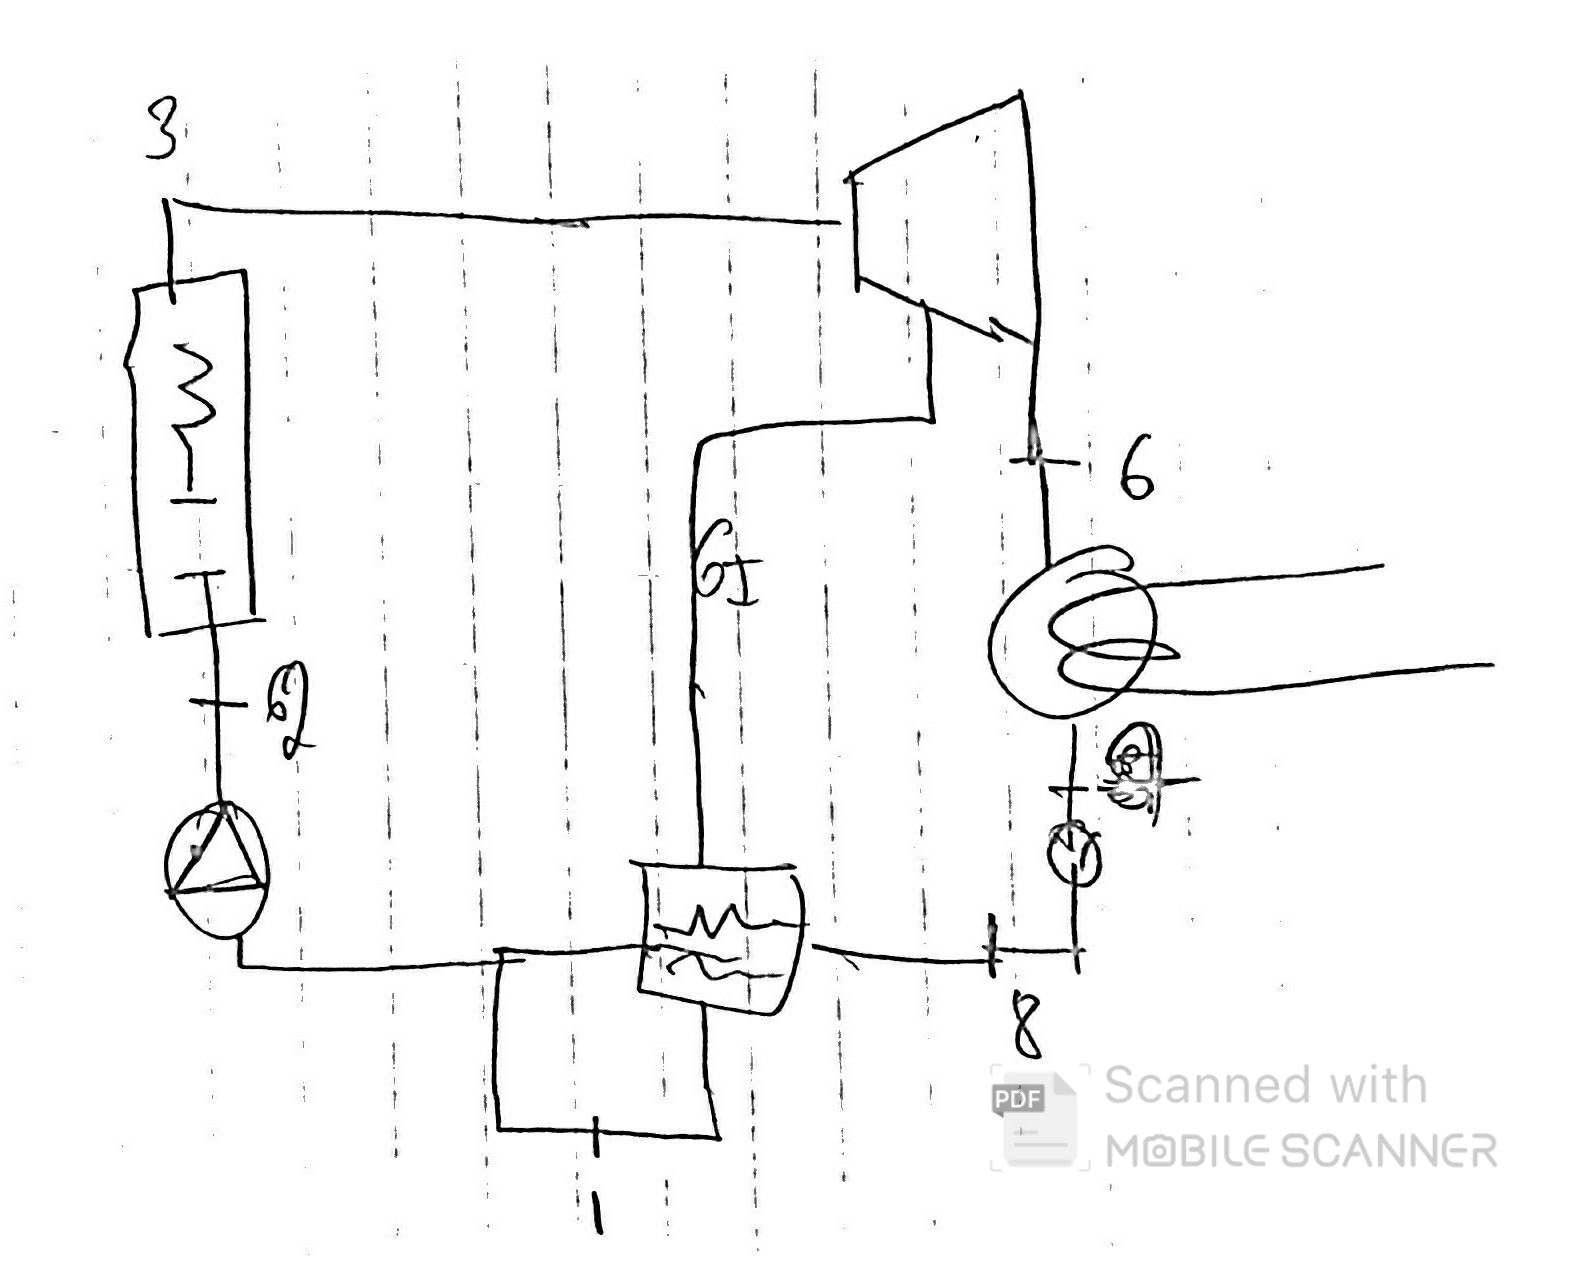 3
6
6I
62
8
PDF
Scanned with
MOBILE SCANNER
1